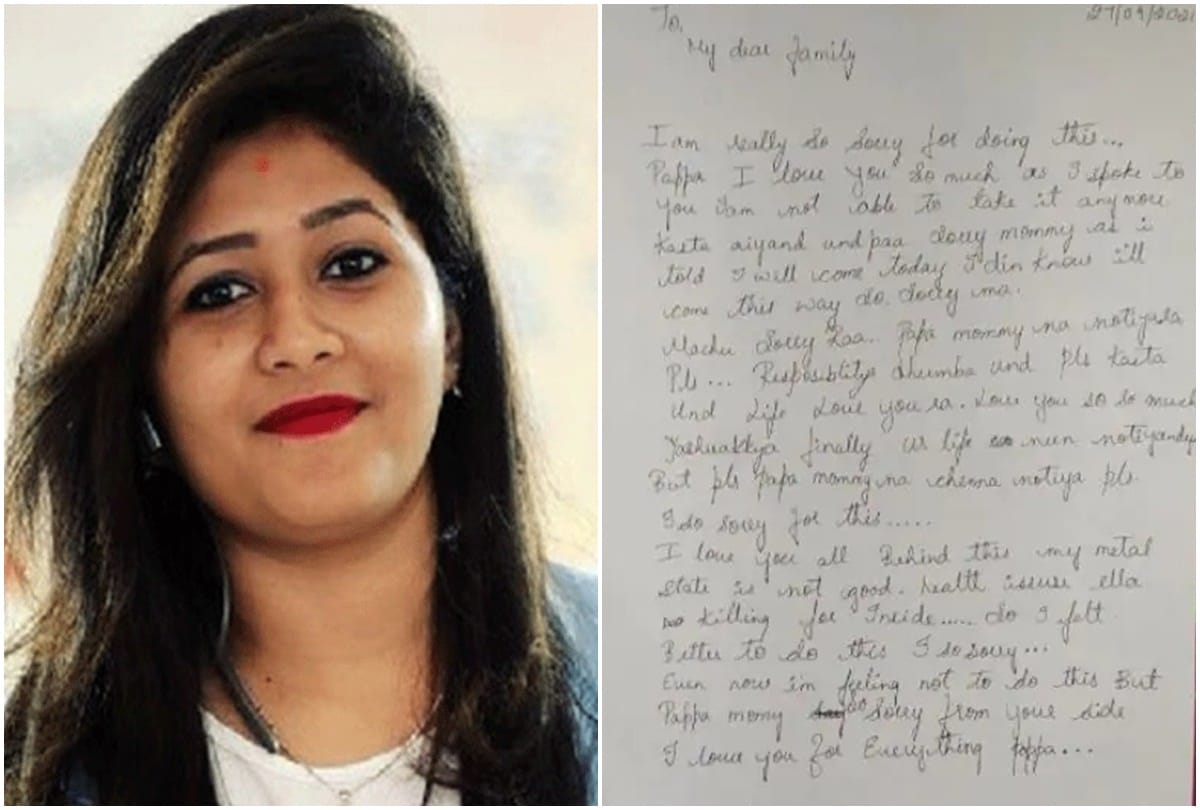 27/09/2021
To,
My dear family
I am really so sorry for doing this...
Pappa I love you so much as I spoke to
you iam not able to take it anymore
Kasta aiyand und paa sorry mommy as i
told I will come today I din know ill
come this way so sorry ma.
Machu sorry Raa.. Papa mommy na
Pls... und pls Kasta
und life love you ra. Love you so so much
finally life
But pls papa mommy na chenna notiya pls.
I so sorry for this......
I love you all Behind this my metal
state is not good. health issuse ella
Killing for Inside..... So I felt
Better to do this I so sorry...
Even now im feeling not to do this But
Pappa momy sorry from your side
I love you for Everything Pappa...